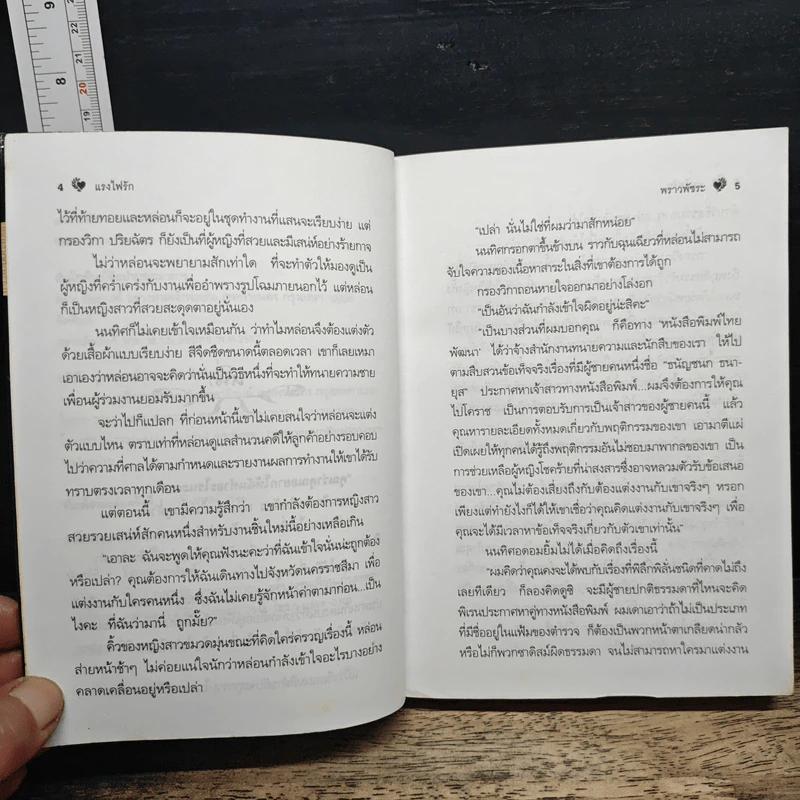 9
8
22
21
20
19
4 แรงไฟรัก
ไว้ที่ท้ายทอยและหล่อนก็จะอยู่ในชุดทำงานที่แสนจะเรียบง่าย แต่
กรองวิกา ปริยฉัตร ก็ยังเป็นที่ผู้หญิงที่สวยและมีเสน่ห์อย่างร้ายกาจ
ไม่ว่าหล่อนจะพยายามสักเท่าใด ที่จะทำตัวให้มองดูเป็น
ผู้หญิงที่คร่ำเคร่งกับงานเพื่ออำพรางรูปโฉมภายนอกไว้ แต่หล่อน
ก็เป็นหญิงสาวที่สวยสะดุดตาอยู่นั่นเอง
นนทิศก็ไม่เคยเข้าใจเหมือนกัน ว่าทำไมหล่อนจึงต้องแต่งตัว
ด้วยเสื้อผ้าแบบเรียบง่าย สีจืดชืดขนาดนี้ตลอดเวลา เขาก็เลยเหมา
เอาเองว่าหล่อนอาจจะคิดว่านั่นเป็นวิธีหนึ่งที่จะทำให้ทนายความชาย
เพื่อนผู้ร่วมงานยอมรับมากขึ้น
จะว่าไปก็แปลก ที่ก่อนหน้านี้เขาไม่เคยสนใจว่าหล่อนจะแต่ง
ตัวแบบไหน ตราบเท่าที่หล่อนดูแลสำนวนคดีให้ลูกค้าอย่างรอบคอบ
ไปว่าความที่ศาลได้ตามกำหนดและรายงานผลการทำงานให้เขาได้รับ
ทราบตรงเวลาทุกเดือน
แต่ตอนนี้ เขามีความรู้สึกว่า เขากำลังต้องการหญิงสาว
สวยรวยเสน่ห์สักคนหนึ่งสำหรับงานชิ้นใหม่นี้อย่างเหลือเกิน
“เอาละ ฉันจะพูดให้คุณฟังนะคะว่าที่ฉันเข้าใจนั่นน่ะถูกต้อง
หรือเปล่า? คุณต้องการให้ฉันเดินทางไปจังหวัดนครราชสีมา เพื่อ
แต่งงานกับใครคนหนึ่ง ซึ่งฉันไม่เคยรู้จักหน้าค่าตามาก่อน...เป็น
ไงคะ ที่ฉันว่ามานี่ ถูกมั๊ย?”
คิ้วของหญิงสาวขมวดมุ่นขณะที่คิดใคร่ครวญเรื่องนี้ หล่อน
ส่ายหน้าช้าๆ ไม่ค่อยแน่ใจนักว่าหล่อนกำลังเข้าใจอะไรบางอย่าง
คลาดเคลื่อนอยู่หรือเปล่า
พราวพัชระ 5
“เปล่า นั่นไม่ใช่ที่ผมว่ามาสักหน่อย”
นนทิศกรอกตาขึ้นข้างบน ราวกับฉุนเฉียวที่หล่อนไม่สามารถ
จับใจความของเนื้อหาสาระในสิ่งที่เขาต้องการได้ถูก
กรองวิกาถอนหายใจออกมาอย่างโล่งอก
“เป็นอันว่าฉันกำลังเข้าใจผิดอยู่น่ะสิคะ”
“เป็นบางส่วนที่ผมบอกคุณ ก็คือทาง ‘หนังสือพิมพ์ไทย
พัฒนา’ ได้ว่าจ้างสำนักงานทนายความและนักสืบของเรา ให้ไป
ตามสืบสวนข้อเท็จจริงเรื่องที่มีผู้ชายคนหนึ่งชื่อ “ธนัญชนก ธนา-
ยุส” ประกาศหาเจ้าสาวทางหนังสือพิมพ์...ผมจึงต้องการให้คุณ
ไปโคราช เป็นการตอบรับการเป็นเจ้าสาวของผู้ชายคนนี้ แล้ว
คุณหารายละเอียดทั้งหมดเกี่ยวกับพฤติกรรมของเขา เอามาตีแผ่
เปิดเผยให้ทุกคนได้รู้ถึงพฤติกรรมอันไม่ชอบมาพากลของเขา เป็น
การช่วยเหลือผู้หญิงโชคร้ายที่น่าสงสารซึ่งอาจหลวมตัวรับข้อเสนอ
ของเขา...คุณไม่ต้องเสี่ยงถึงกับต้องแต่งงานกับเขาจริงๆ หรอก
เพียงแต่ทำยังไงก็ได้ให้เขาเชื่อว่าคุณคิดแต่งงานกับเขาจริงๆ เพื่อ
คุณจะได้มีเวลาหาข้อเท็จจริงเกี่ยวกับตัวเขาเท่านั้น”
นนทิศอดอมยิ้มไม่ได้เมื่อคิดถึงเรื่องนี้
“ผมคิดว่าคุณคงจะได้พบกับเรื่องที่พิลึกพิลั่นชนิดที่คาดไม่ถึง
เลยทีเดียว ก็ลองคิดดูซิ จะมีผู้ชายปกติธรรมดาที่ไหนจะคิด
พิเรนประกาศหาคู่ทางหนังสือพิมพ์ ผมเดาเอาว่าถ้าไม่เป็นประเภท
ที่มีชื่ออยู่ในแฟ้มของตำรวจ ก็ต้องเป็นพวกหน้าตาเกลียดน่ากลัว
หรือไม่ก็พวกซาดิสม์ผิดธรรมดา จนไม่สามารถหาใครมาแต่งงาน